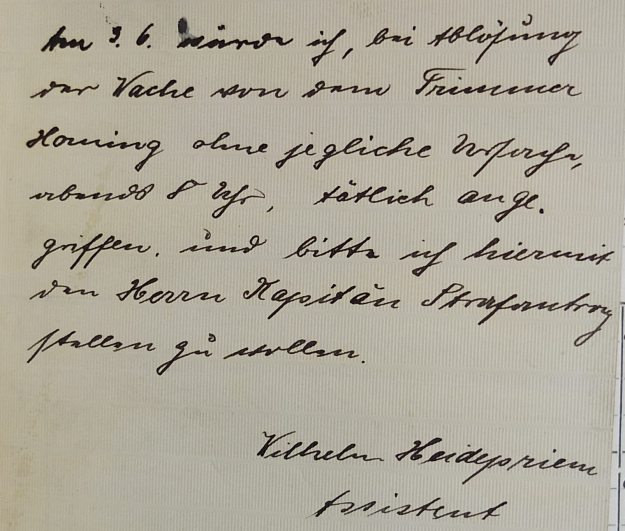 Am 3. 6. wurde ich, bei Ablösung
der Wache von dem Trimmer
Horning ohne jegliche Ursache,
abends 8 Uhr, tätlich ange-
griffen. und bitte ich hiermit
den Herrn Kapitän Strafantrag
stellen zu wollen.
Wilhelm Heidepriem
Assistent